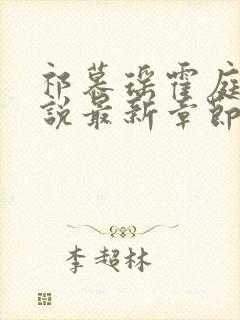 祁慕瑶霍庭
说最新章節
李超林